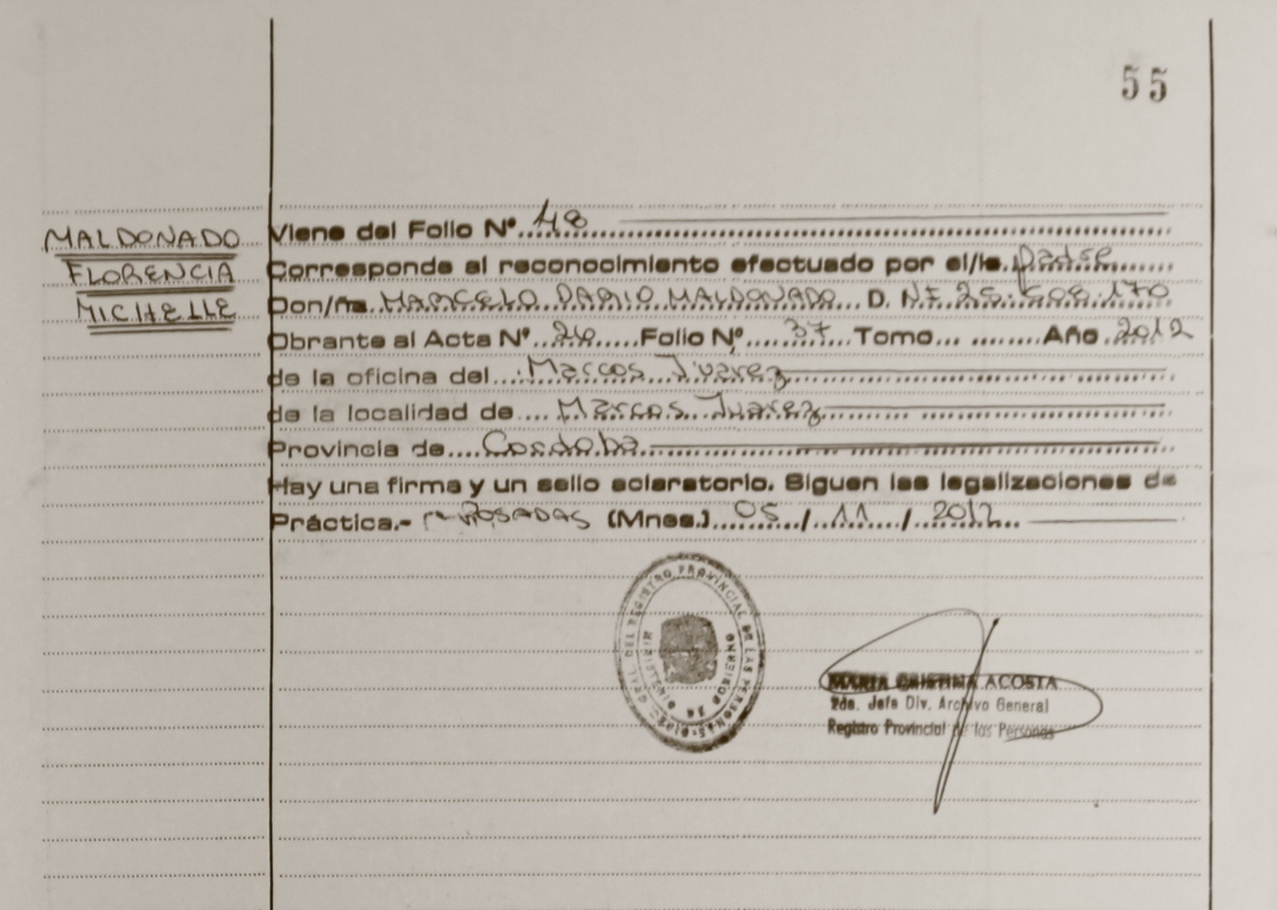 55
MALDONADO
FLORENCIA
MICHELLE
Viene del Folio Nº 48
Corresponde al reconocimiento efectuado por el/la padre
Don/ña MARCELO DARIO MALDONADO D. NI 25.508.170
Obrante al Acta Nº 26 Folio Nº 37 Tomo Año 2012
de la oficina del Marcos Juarez
de la localidad de Marcos Juarez
Provincia de Cordoba
Hay una firma y un sello aclaratorio. Siguen las legalizaciones de
Práctica.- POSADAS (Mnes.) 05/11/2012
GRAL. DEL REGISTRO PROVINCIAL DE LAS PERSONAS
MINISTERIO DE GOBIERNO
MARIA CRISTINA ACOSTA
2da. Jefa Div. Archivo General
Registro Provincial de las Personas